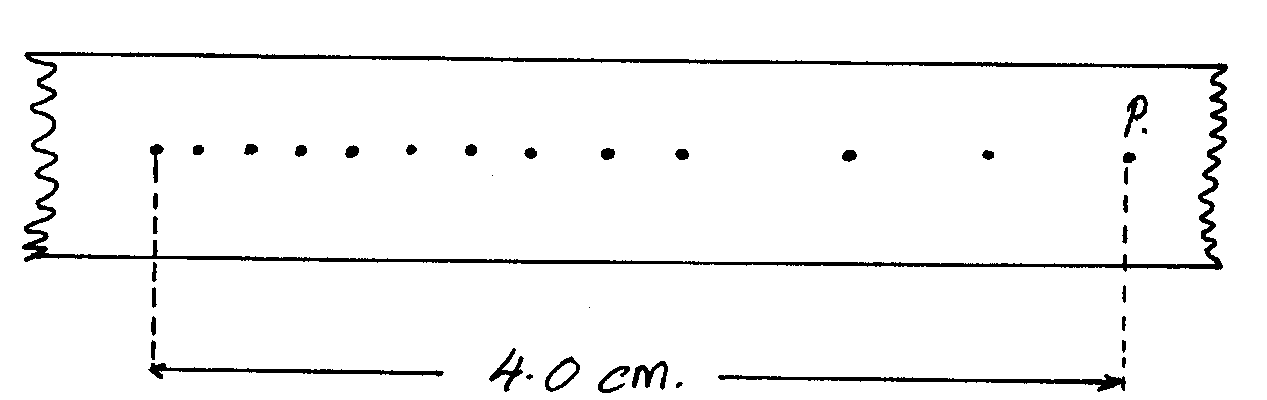 P.
4.0 cm.